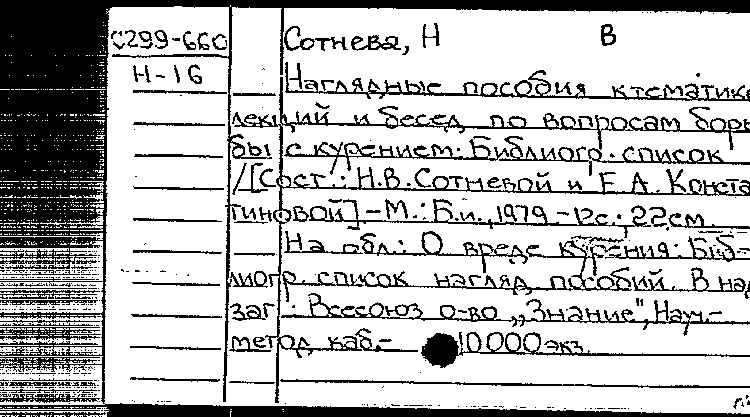 С299-660 Сотнева, Н В
Н-16 Наглядные пособия к тематике
лекций и бесед по вопросам борь
бы с курением: Библиогр. список
/[Сост.: Н.В.Сотневой и Е.А. Конста
тиновой]-М.: Б.и., 1979.-12с.; 22см
На обл.: О вреде курения: Биб-
лиогр. список нагляд. пособий. В над
заг.: Всесоюз о-во „Знание", Науч.-
метод каб.- 10000экз.